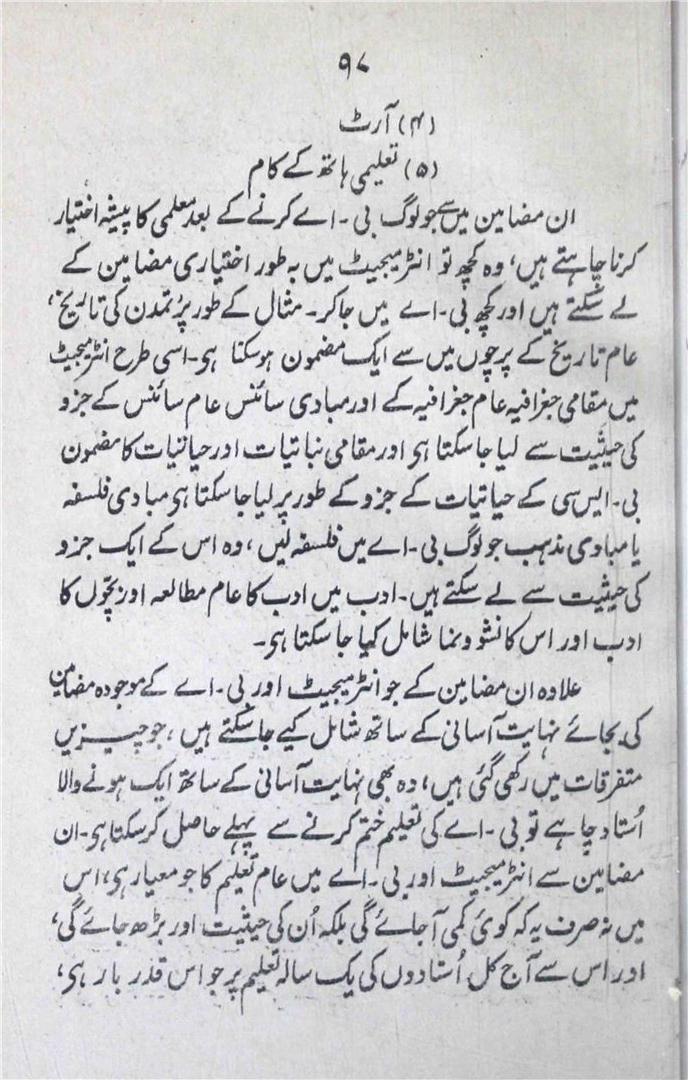 ۹۷
(۴) آرٹ
(۵) تعلیمی ہاتھ کے کام
ان مضامین میں سے جو لوگ بی۔اے کرنے کے بعد معلمی کا پیشہ اختیار
کرنا چاہتے ہیں، وہ کچھ تو انٹرمیجیٹ میں بہ طور اختیاری مضامین کے
لے سکتے ہیں اور کچھ بی۔اے میں جا کر۔ مثال کے طور پر تمدن کی تاریخ،
عام تاریخ کے پرچوں میں سے ایک مضمون ہو سکتا ہی۔اسی طرح انٹرمیجیٹ
میں مقامی جغرافیہ عام جغرافیہ کے اور مبادی سائنس عام سائنس کے جزو
کی حیثیت سے لیا جا سکتا ہی اور مقامی نباتیات اور حیاتیات کا مضمون
بی۔ایس سی کے حیاتیات کے جزو کے طور پر لیا جا سکتا ہی مبادی فلسفہ
یا مبادی مذہب جو لوگ بی۔اے میں فلسفہ لیں، وہ اس کے ایک جزو
کی حیثیت سے لے سکتے ہیں۔ادب میں ادب کا عام مطالعہ اور بچّوں کا
ادب اور اس کا نشو و نما شامل کیا جا سکتا ہی۔
علاوہ ان مضامین کے جو انٹرمیجیٹ اور بی۔اے کے موجودہ مضامین
کی بجائے نہایت آسانی کے ساتھ شامل کیے جا سکتے ہیں، جو چیزیں
متفرقات میں رکھی گئی ہیں، وہ بھی نہایت آسانی کے ساتھ ایک ہونے والا
اُستاد چاہے تو بی۔اے کی تعلیم ختم کرنے سے پہلے حاصل کر سکتا ہی۔ان
مضامین سے انٹرمیجیٹ اور بی۔اے میں عام تعلیم کا جو معیار ہی، اس
میں نہ صرف یہ کہ کوئی کمی آ جائے گی بلکہ اُن کی حیثیت اور بڑھ جائے گی،
اور اس سے آج کل اُستادوں کی یک سالہ تعلیم پر جو اس قدر بار ہی،